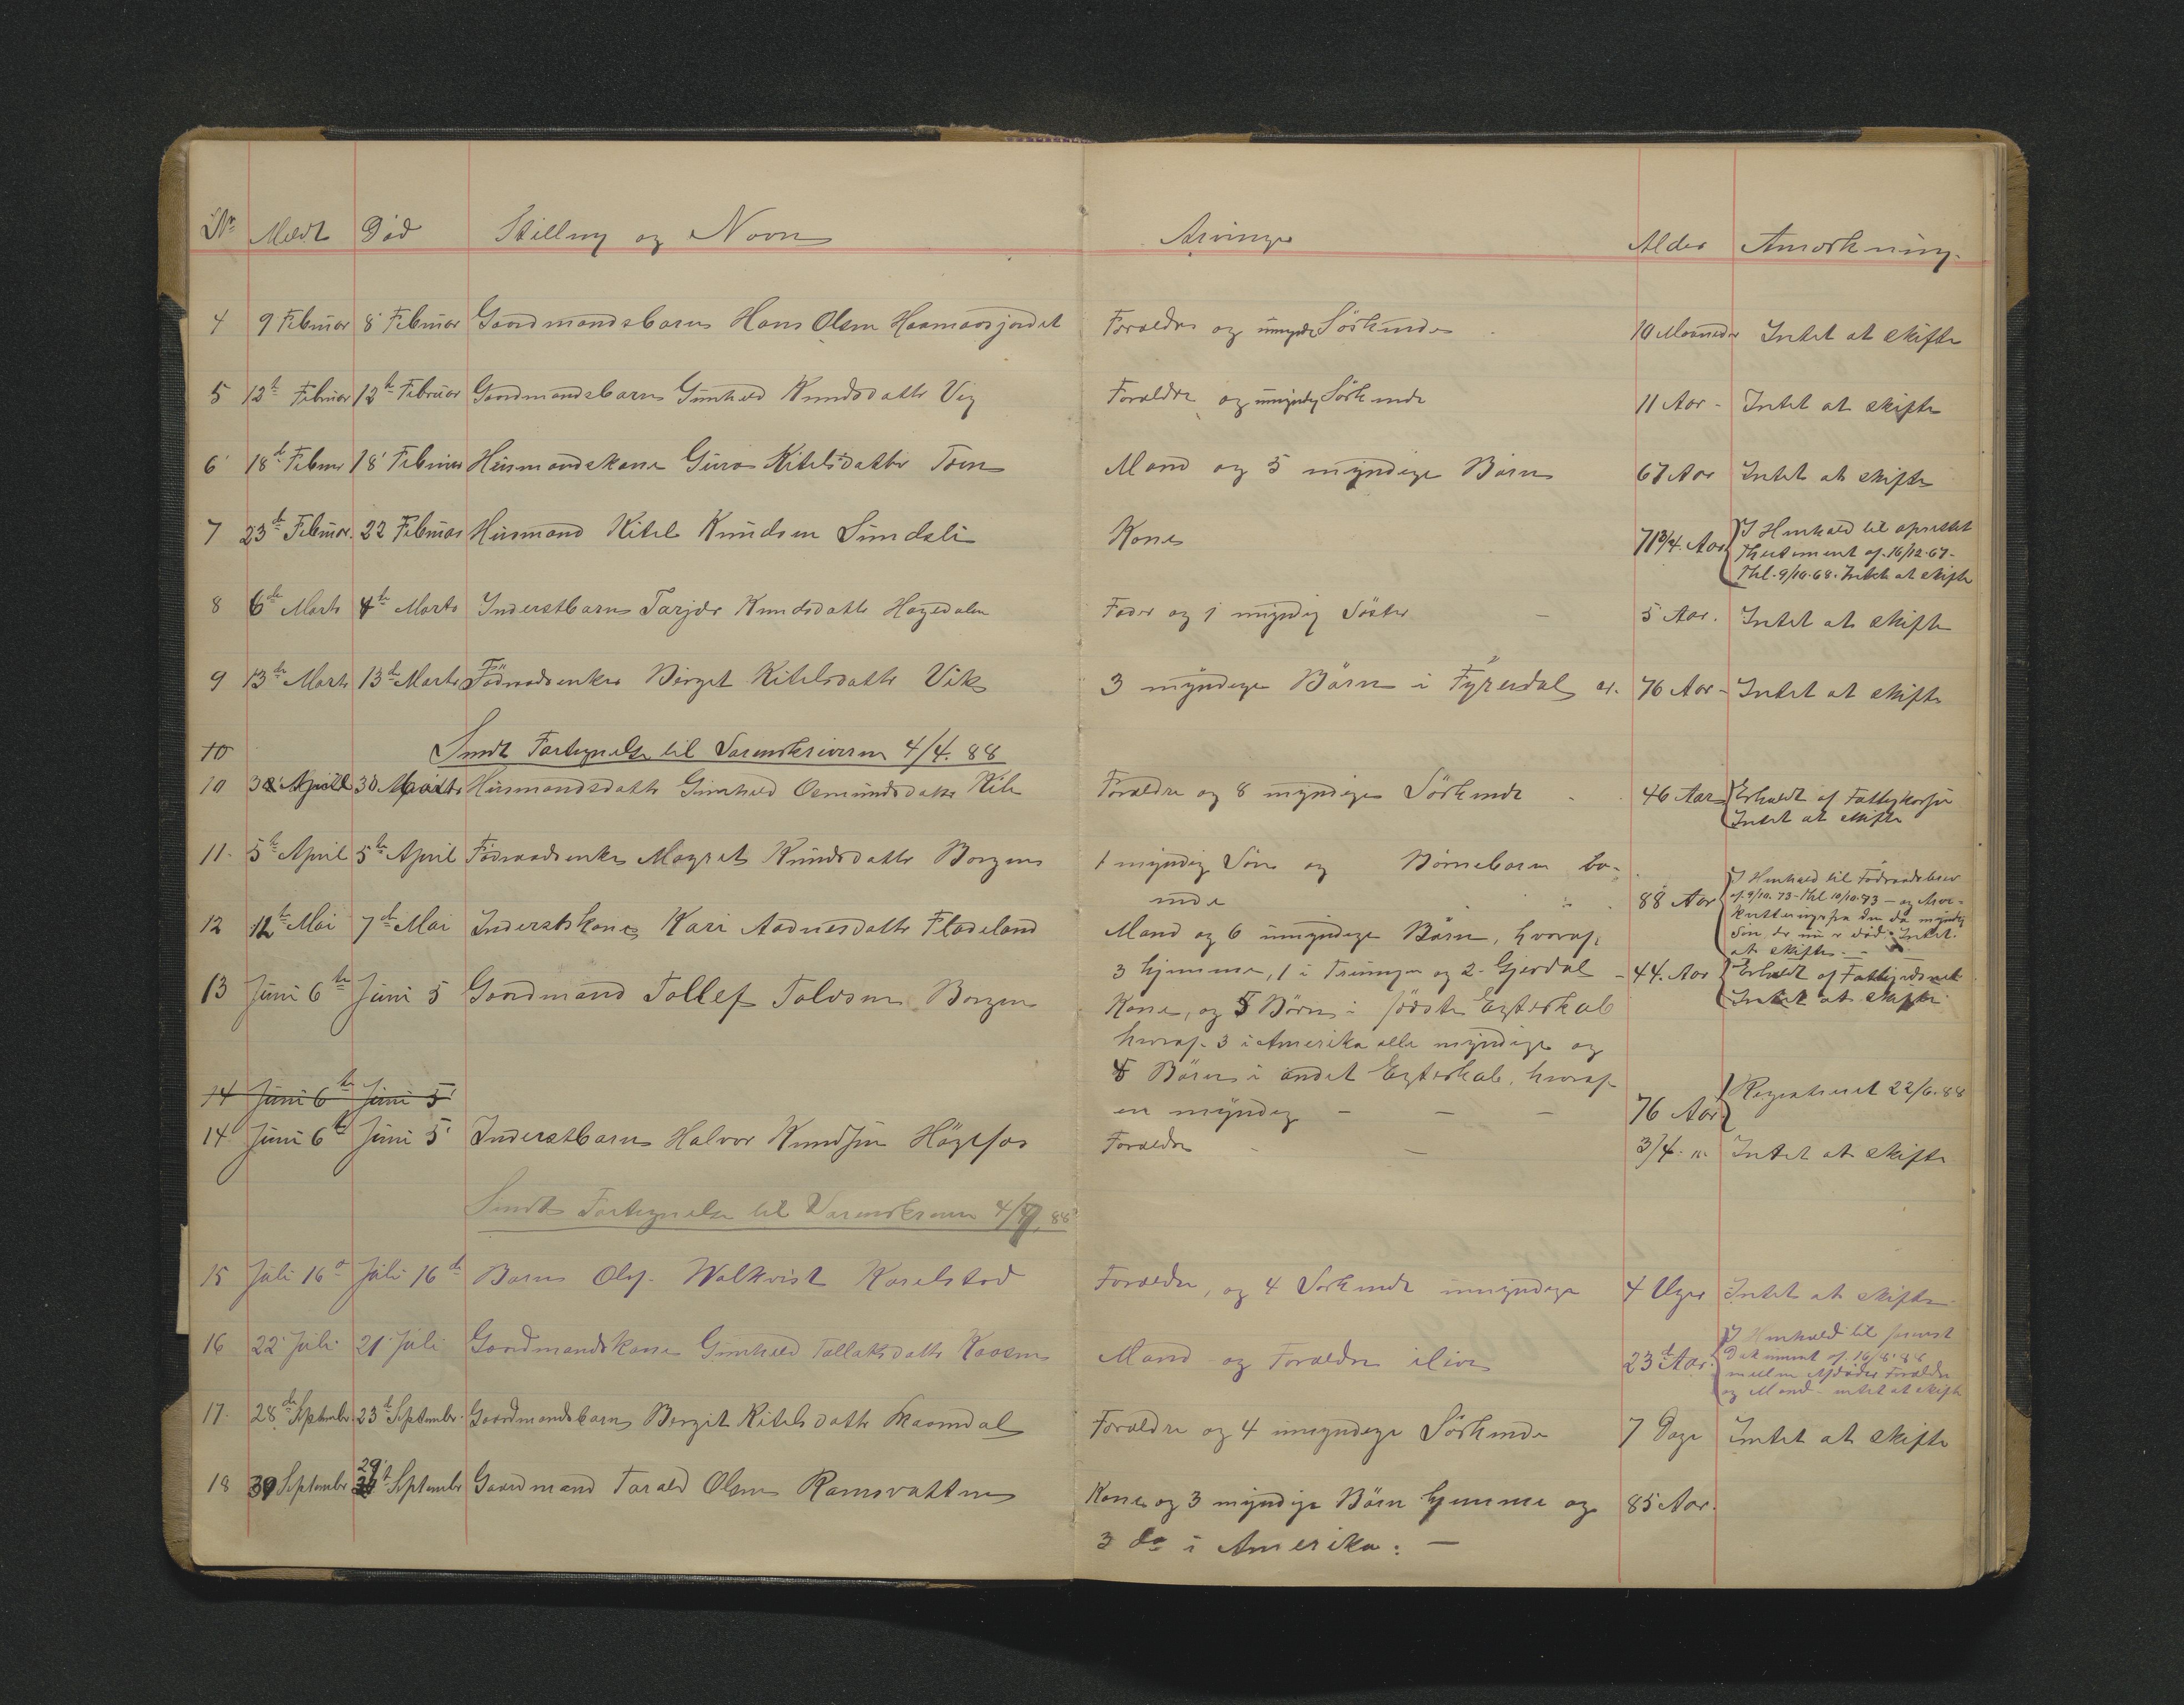 Nr Meldt Död Stilling og Navn Arvinger Alder Anmerkning.
4 9 Februar 8' Februar Gaardmandsbarn Hans Olsen Haamaasjordet Foreldre og umyndige Sörkende 10 Maaneder Intet at skifte
5 12te Februar 12te Februar Gaardmandsbarn Gunhild Knudsdatter Vig Foreldre og umyndig Sörkende 11 Aar - Intet at skifte
6 18de Februar 18' Februar Huusmandskone Guro Kitelsdatter Mand og 5 myndige Börn 67 Aar Intet at skifte
7 23de Februar. 22 Februar Huusmand Kitel Knudsen Sundsli Kone 71 3/4. Aar I Henhold til oprettet
Thestement af. 16/12.67-
Thl. 9/10.68. Intet at skifte
8 6de Marts 4de Marts Inderstbarn Tarjer Knudsdatter Hagedalen Fader og 1 myndig Söster - 5 Aar. Intet at skifte
9 13de Marts 13de Marts Födraadsenke Birget Kitelsdatter Vik 3 myndige Börn i Fyresdal 76 Aar - Intet at skifte
10 Sendt Fortegnelse til Sorenskriveren 4/4. 88
10 30 Marts Huusmandsdatter Gunhild Osmundsdatter Foreldre og 8 myndige Sörkende - 46 Aar Erholdt af Fattigkassen
Intet at skifte
11. 5te April 5te April Födraadsenke Margret Knudsdatter Borgen 1 myndig Sön og Börnebarn bo-
ende 88 Aar I Henhold til Födraadsbrev
af. 9/10. 73 - Thl 10/10.73 - og
fra den da myndig
Sön, der nu er död. Intet
at skifte. -
12 12te Mai 7de Mai Inderstkone Kari Aadnesdatter Fladeland Mand og 6 umyndige Börn, hvoraf.
3 hjemme, 1 i Trungen og 2 - Gjerdal - 44. Aar Erholdt af
Intet at skifte
13 Juni 6te Juni 5 Gaardmand Tollef Talvsen Borgen Kone, og 5 Börn i förste Egteskab
hvoraf. 3 i Amerika alle myndige og
5 Börn i andet Egteskab, hvoraf
en myndig - - - 76 Aar. Registreret 22/6. 88
14 Juni 6te Juni 5'
14' Juni 6te Juni 5' Inderstbarn Halvor Knudsen Högefos Foreldre - - 3/4. Intet at skifte
Sendt Fortegnelse til Sorenskriveren 4/7. 88
15 Juli 16de Juli 16de Barn Olaf. Walkvist Karelstad Foreldre, og 4 Sörkende umyndige 4 Uger Intet at skifte
16 22' Juli 21' Juli Gaardmandskone Gunhild Tallaksdatter Kaasen Mand og Foreldre ilive 23de Aar. I Henhold til
af. 16/8. 88
mellem Afdödes Foreldre
og Mand - intet at skifte
17. 28de September. 23de September. Gaardmandsbarn Bergit Kitelsdatter Skaamdal Foreldre og 4 umyndige Sörkende 7 Dage Intet at skifte
18 30 September 29' September Gaardmand Tarald Olsen Ramsvatten Kone og 3 myndige Börn hjemme og 85 Aar.
3 do i Amerika. -